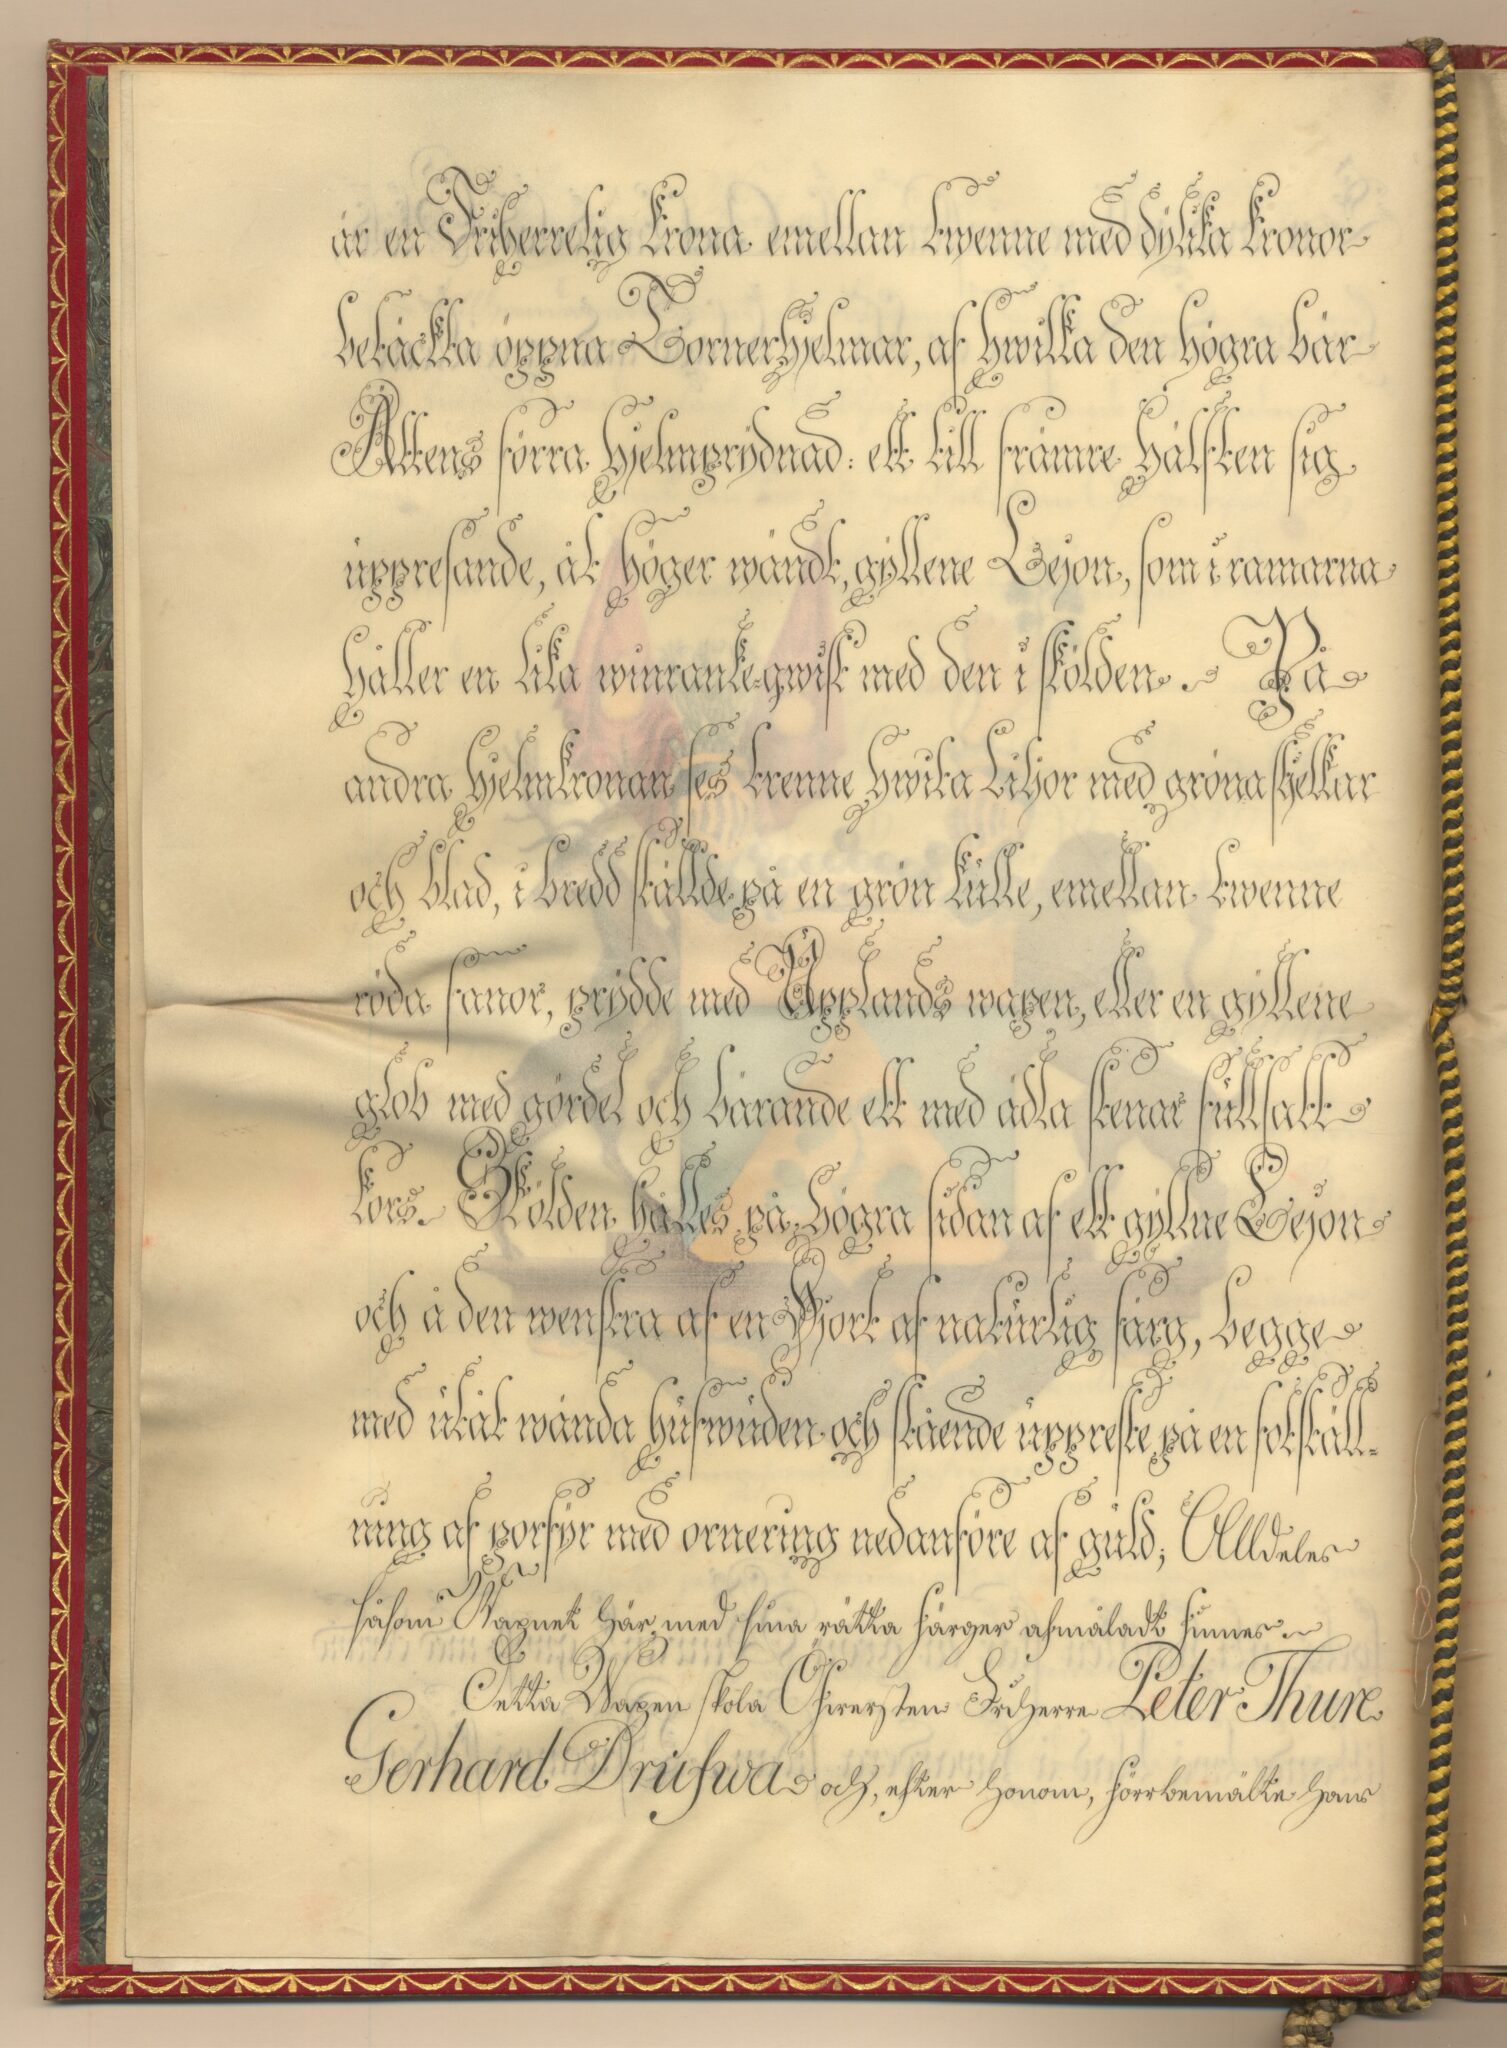 är en Friherrelig Krona emellan twenne med dylika kronor
betäckta öppna Tornerhjelmar, af hwilka den högra bär
Ättens förra hjelmprydnad: ett till främre hälften sig
uppresande, åt höger wändt, gyllene Lejon, som i ramarna
håller en lika winranke-qwist med den i skölden. På
andra hjelmkronan ses trenne hwita Liljor med gröna stjelkar
och blad, i bredd ställde på en grön kulle, emellan twenne
röda fanor, prydde med Upplands wapen, eller en gyllene
glob med gördel och bärande ett med ädla stenar fullsatt
kors. Skölden hålles på högra sidan af ett gyllne Lejon
och å den wenstra af en Hjort af naturlig färg, begge
med utåt wända hufwuden och stående uppreste på en fotställ-
ning af porfyr med ornering nedanföre af guld; Alldeles
såsom Wapnet här med sina rätta färger afmåladt finnes.
Detta Wapen skola Öfwersten Friherre Peter Thure
Gerhard Drufwa och, efter honom, förrbemälte hans